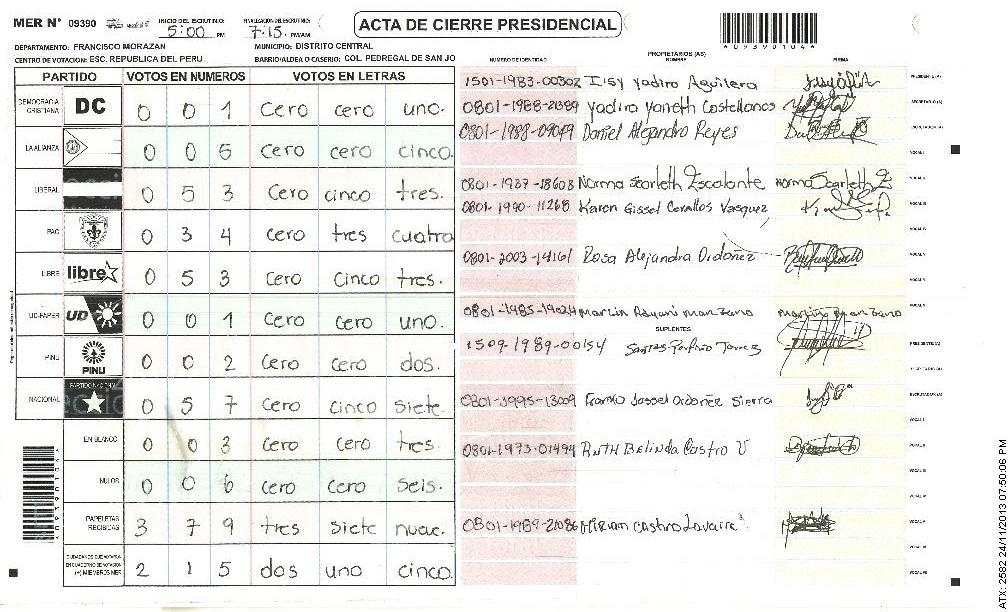 MER N° 09390 INICIO DEL ESCRUTINIO: 5:00 PM FINALIZACION DEL ESCRUTINIO: 7:15 PM/AM ACTA DE CIERRE PRESIDENCIAL
DEPARTAMENTO: FRANCISCO MORAZAN MUNICIPIO: DISTRITO CENTRAL
CENTRO DE VOTACION: ESC. REPUBLICA DEL PERU BARRIO/ALDEA O CASERIO: COL. PEDREGAL DE SAN JO
09390104
NUMERO DE IDENTIDAD PROPIETARIOS (AS) NOMBRE FIRMA
PARTIDO VOTOS EN NUMEROS VOTOS EN LETRAS
DEMOCRACIA CRISTIANA DC 0 0 1 cero cero uno.
LA ALIANZA 0 0 5 cero cero cinco.
LIBERAL 0 5 3 Cero cinco tres.
PAC 0 3 4 cero tres cuatro
LIBRE libre 0 5 3 Cero Cinco tres.
UD-FAPER UD 0 0 1 Cero Cero uno.
PINU PINU 0 0 2 Cero cero dos.
NACIONAL PARTIDO NACIONAL 0 5 7 Cero cinco siete.
EN BLANCO 0 0 3 Cero cero tres.
NULOS 0 0 6 cero cero seis.
PAPELETAS RECIBIDAS 3 7 9 tres siete nueve.
CIUDADANOS QUE VOTARON EN CUADERNO DE VOTACION (+) MIEMBROS MER 2 1 5 dos uno cinco
1501-1983-00302 Issy Yadira Aguilera PRESIDENTE (A)
0801-1988-21389 Yadira Yaneth Castellanos SECRETARIO (A)
0801-1988-09049 Daniel Alejandro Reyes ESCRUTADOR (A)
VOCAL I
0801-1987-18608 Norma Scarleth Escalante Norma Scarleth E VOCAL II
0801-1990-11268 Karen Gissel Cevallos Vasquez VOCAL III
VOCAL IV
0801-2003-14161 Rosa Alejandra Ordoñez VOCAL V
0801-1985-19024 Martin Reyani Manzano Martin Manzano
SUPLENTES
1509-1989-00154 Santos Porfirio Torrez PRESIDENTE (A)
SECRETARIO (A)
0801-1995-13009 Franklo Jassel Ordoñez Sierra ESCRUTADOR (A)
VOCAL I
0801-1973-01494 Ruth Belinda Castro V VOCAL II
VOCAL III
VOCAL IV
0801-1989-21086 Mirian Castro Lavaire VOCAL V
ATX: 2582 24/11/2013 07:50:06 PM